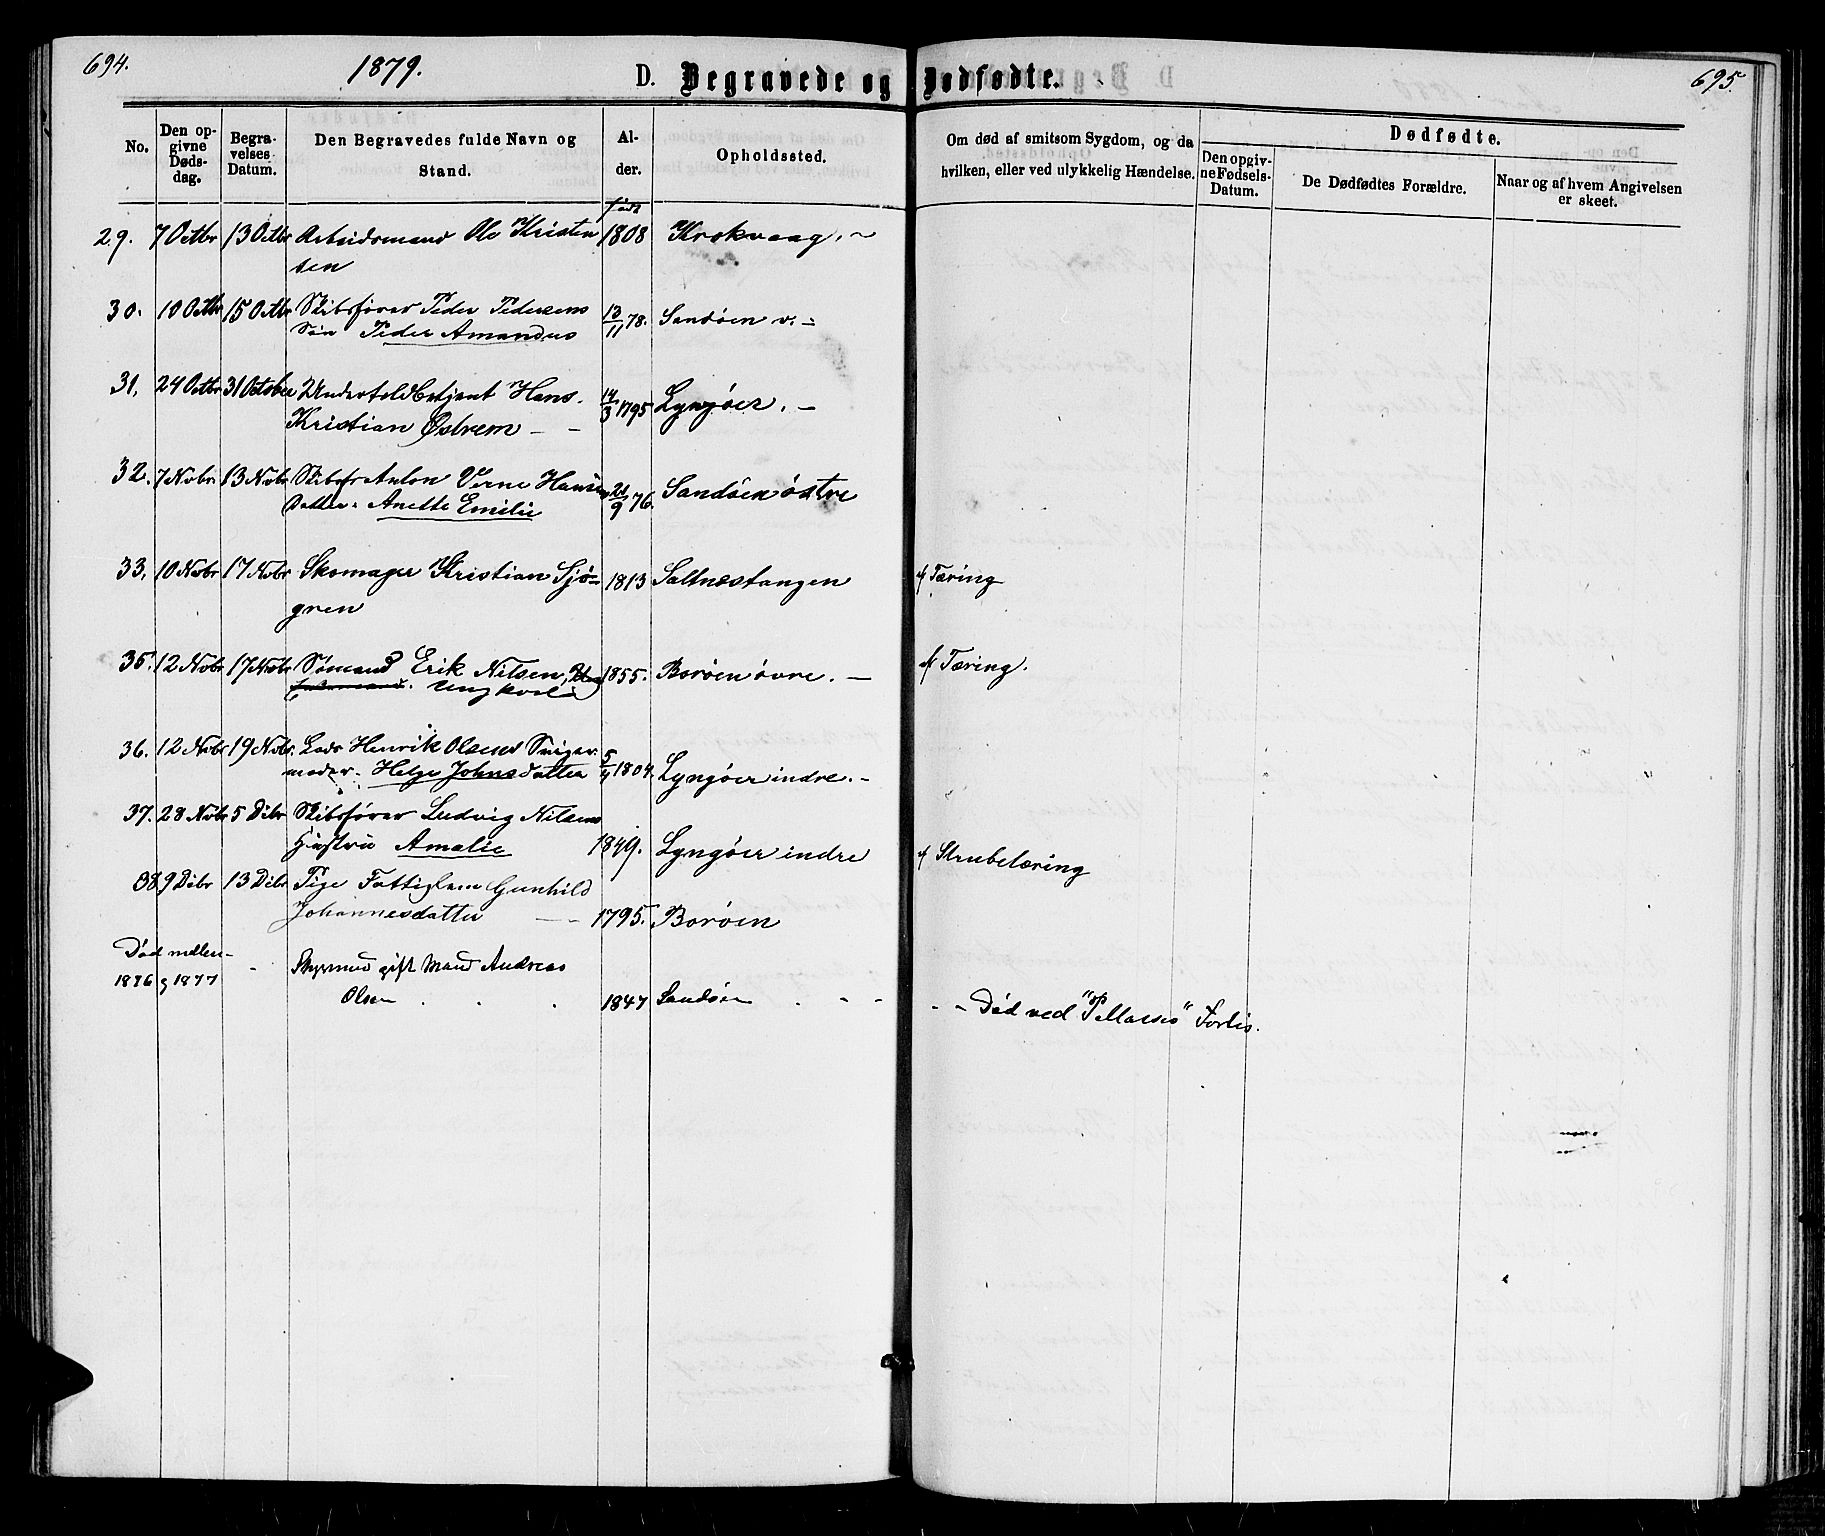 694.
1879.
D. Begravede og Dødfødte.
695.
No.
Den opgivne Dødsdag.
Begravelses Datum.
Den Begravedes fulde Navn og Stand.
Alder.
Opholdssted.
Om død af smitsom Sygdom, og da hvilken, eller ved ulykkelig Hændelse.
Dødfødte.
Den opgivne Fødsels-Datum.
De Dødfødtes Forældre.
Naar og af hvem Angivelsen er skeet.
født
29. 7 Octbr 13 Octbr Arbeidsmand Ole Kristen 1808 Krokvaag. ~
sen
30. 10 Octbr 15 Octbr Skibsfører Peder Pedersens
Søn Peder Amandus 13/11 78. Sandøen v. -
31. 24 Octbr 31 October Undertoldbetjent Hans
Kristian Østrem - - 14/3 1795 Lyngøer. -
32. 7 Novbr 13 Novbr Skibsfr Anton Verne Hansen
Datter. Anette Emilie 21/9 76. Sandøen østre
33. 10 Novbr 17 Novbr Skomager Kristian Sjø= 1813 Saltnestangen af Tæring
gren
35. 12 Novbr 17 Novbr Sømand Erik Nilsen, 1855. Borøen øvre. - af Tæring.
Ungkarl
36. 12 Novbr 19 Novbr. Lods Henrik Olsens Sviger
moder. Helge Johnsdatter 5/4 1804. Lyngøer indre. -
37. 28 Novbr 5 Debr Skibsfører Ludvig Nilsens
Hustru Amalie 1849. Lyngøer indre af Strubetæring
38 9 Debr 13 Debr Pige Fattiglem Gunhild
Johannesdatter - - 1795. Borøen
Død mellem -
1876 og 1877 - Styrmand gift Mand Andreas
Olsen . . . 1847 Sandøen . - - - - Død ved "Forlis.